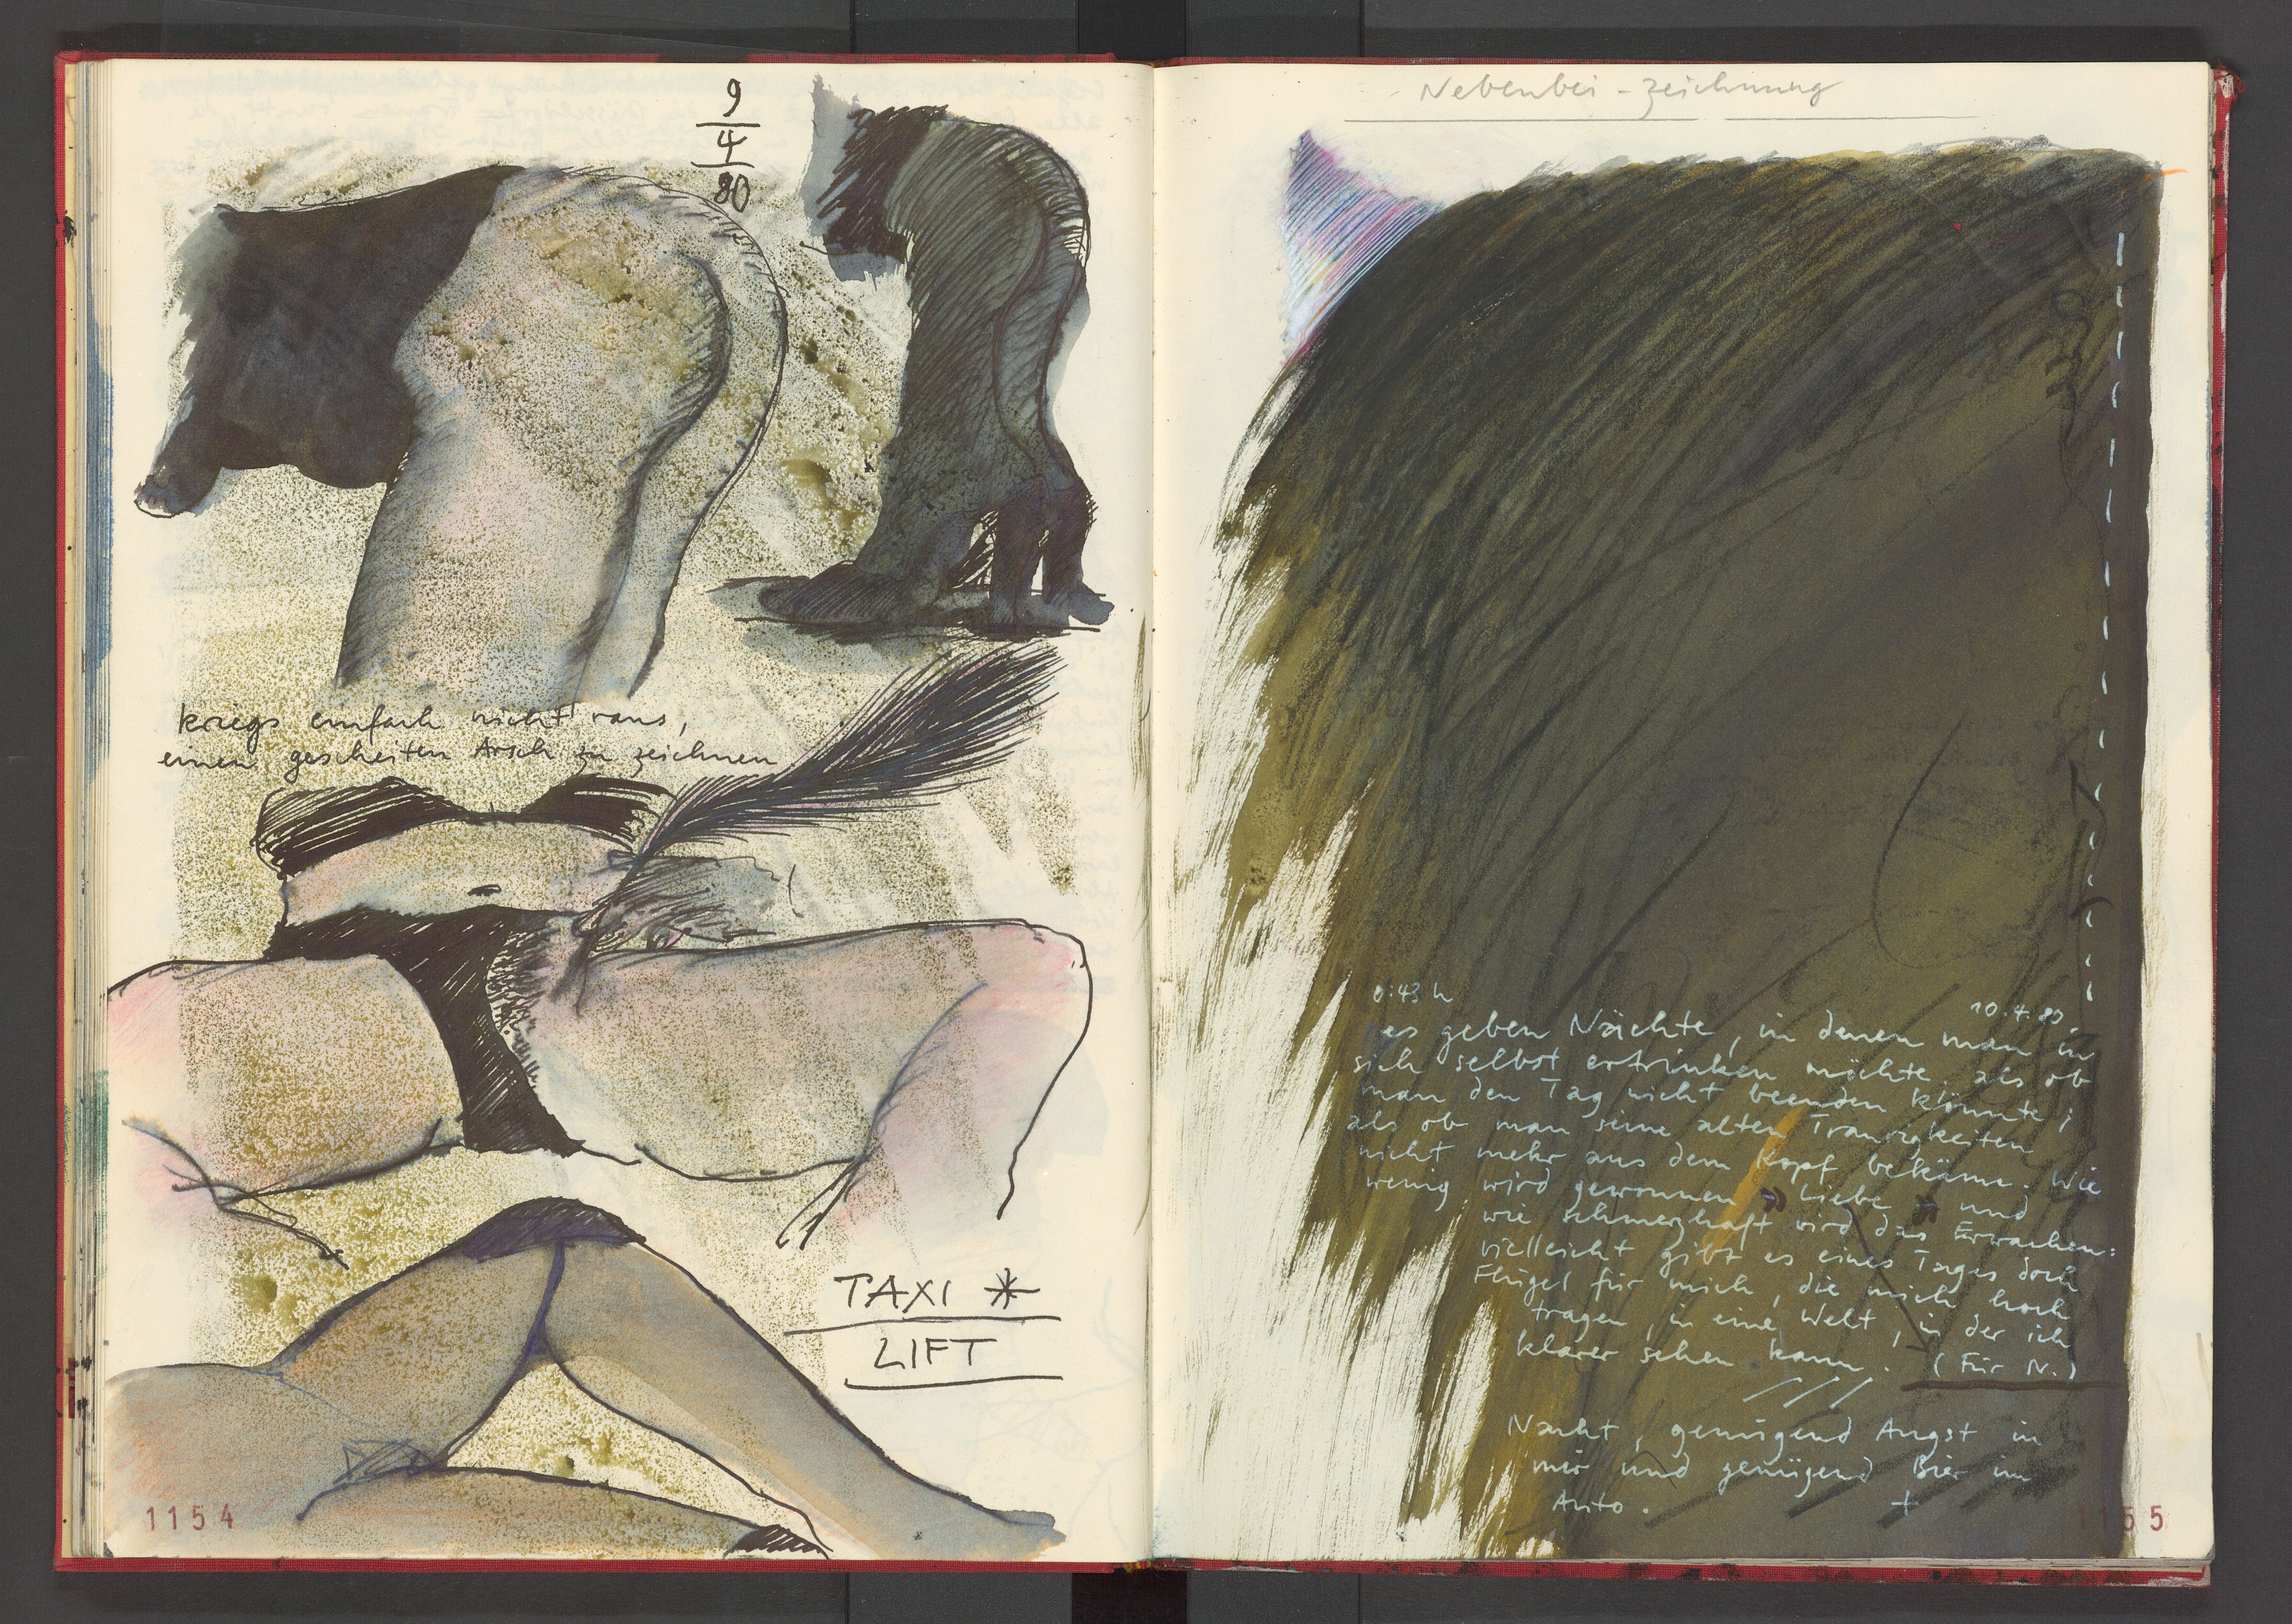 9
4
80
kriegs einfach nicht raus,
einen gescheiten Arsch zu zeichnen
TAXI *
LIFT
1154
Nebenbei - zeichnung
0:43 h
10.4.80.
es geben Nächte, in denen man in
sich selbst ertrinken möchte, als ob
man den Tag nicht beenden könnte;
als ob man seine alten Traurigkeiten
nicht mehr aus dem Kopf bekäme. Wie
wenig wird gewonnen - Liebe - und
wie schmerzhaft wird das Erwachen:
vielleicht gibt es eines Tages doch
Flügel für mich, die mich hoch
tragen, in eine Welt, in der ich
klarer sehen kann. (Für N.)
Nacht, genügend Angst in
mir und genügend Bier im
Auto. +
1155